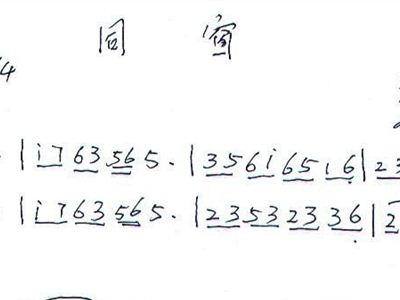 同 窗
/4
|i763565·|356i6516|23
|i763565·|23532336|2